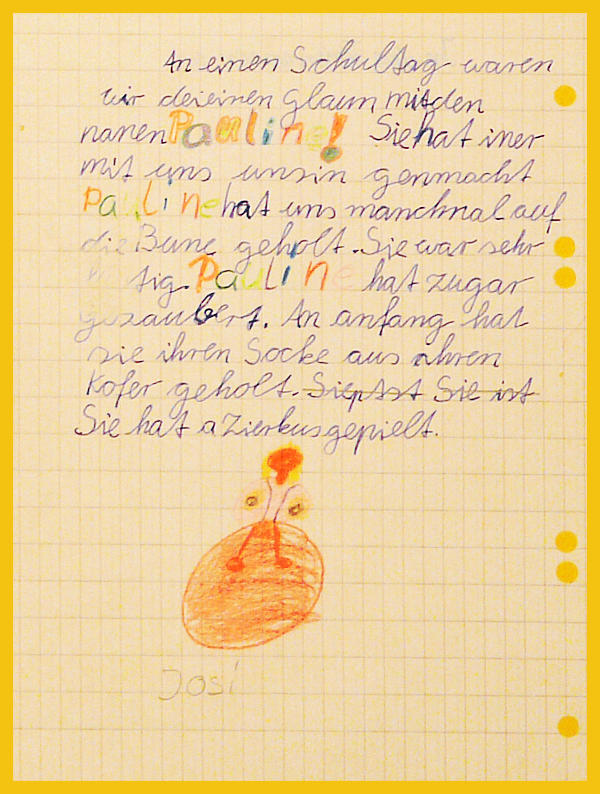 An einen Schultag waren
wir deieinen Glaun mitden
nanen Pauline! Sie hat imer
mit uns unsin genmacht
Pauline hat uns manchnal auf
die Büne geholt. Sie war sehr
tig. Pauline hat zugar
gezaubert. An anfang hat
sie ihren Socke aus ihren
Kofer geholt. Sie ist
Sie hat a Zierkusgepielt.
Josi